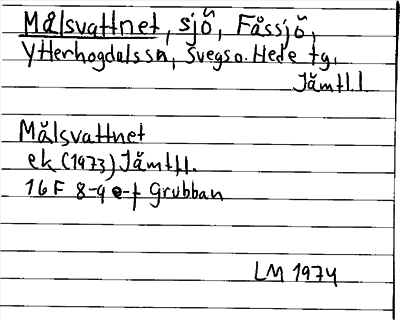 Målsvattnet, sjö, Fåssjö,
Ytterhogdalssn, Svegs o. Hede tg.
Jämtl.l
Målsvattnet
ek (1973) Jämtl.l.
16F 8-9 e-f Grubban
LM 1974